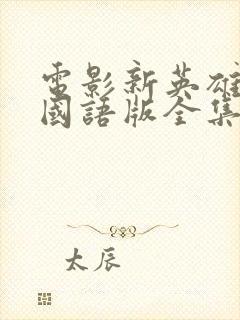 電影新英雄
國語版全集
太辰